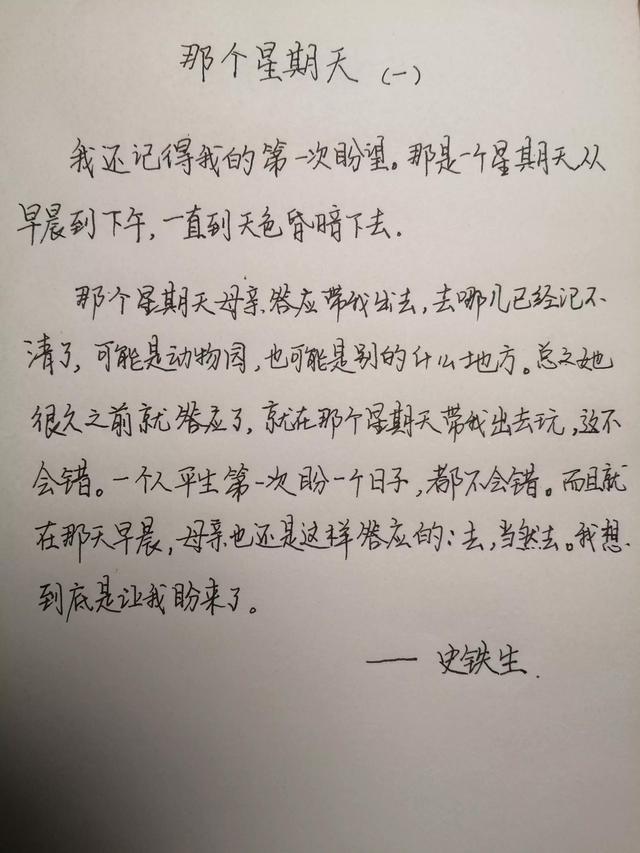 那个星期天（一）
我还记得我的第一次盼望。那是一个星期天从
早晨到下午，一直到天色昏暗下去.
那个星期天母亲答应带我出去，去哪儿已经记不
清了，可能是动物园，也可能是别的什么地方。总之她
很久之前就答应了，就在那个星期天带我出去玩，这不
会错。一个人平生第一次盼一个日子，都不会错。而且就
在那天早晨，母亲也还是这样答应的：去，当然去。我想.
到底是让我盼来了。
—— 史铁生.